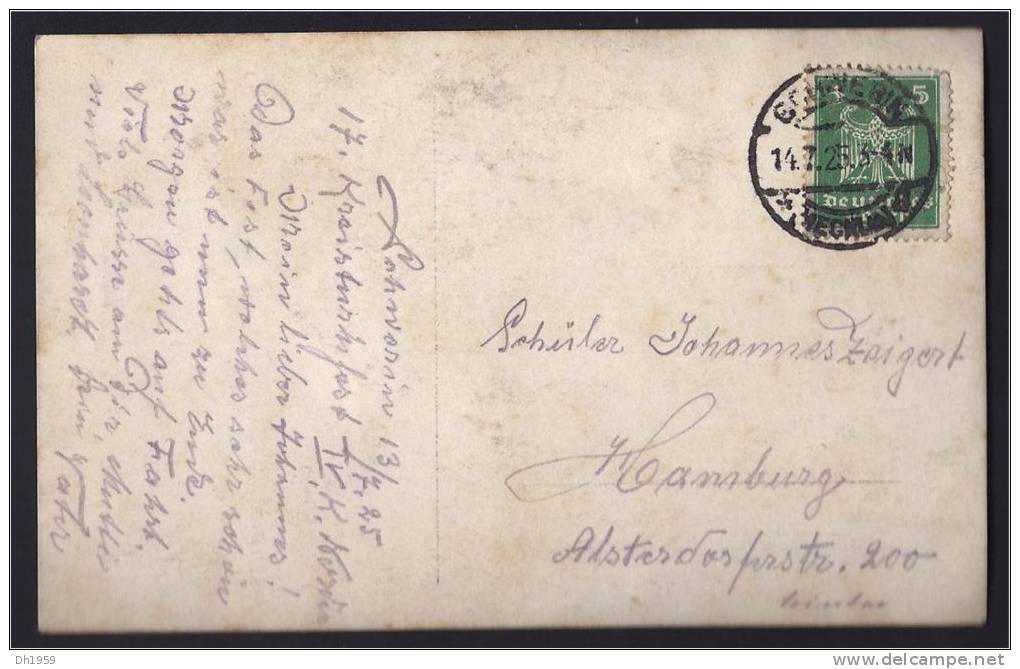 Schwerin 13/7.25
17. Kreisturnfest IV. K. Norden
Mein lieber Johannes!
Das Fest, welches sehr schön
war ist nun zu Ende.
Morgen gehts auf Fahrt.
Viele Grüsse an Dir, Mutti
und Dein Vater
SCHWERIN
14.7.25.
(MECKLB)
5
Deutsches
Reich
Schüler Johannes Zeigert
Hamburg
Alsterdorferstr. 200
DH1959
delcampe.net